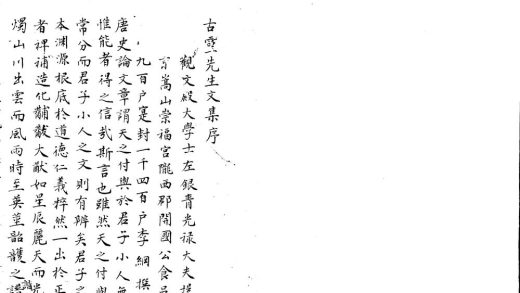 古靈先生文集序
觀文殿大學士左銀青光祿大夫提
嵩山崇福宮隴西郡開國公食邑
九百户寔封一千四百户李綱撰
唐史論文章謂天之付與於君子小人無
惟能者得之信哉斯言也雖然天之付與
常分而君子小人之文則有辨矣君子之
本淵源根底於道德仁義粹然一出於正
者裨補造化黼黻大猷如星辰麗天而光
燭山川出雲而風雨時至英莖韶頀之諧